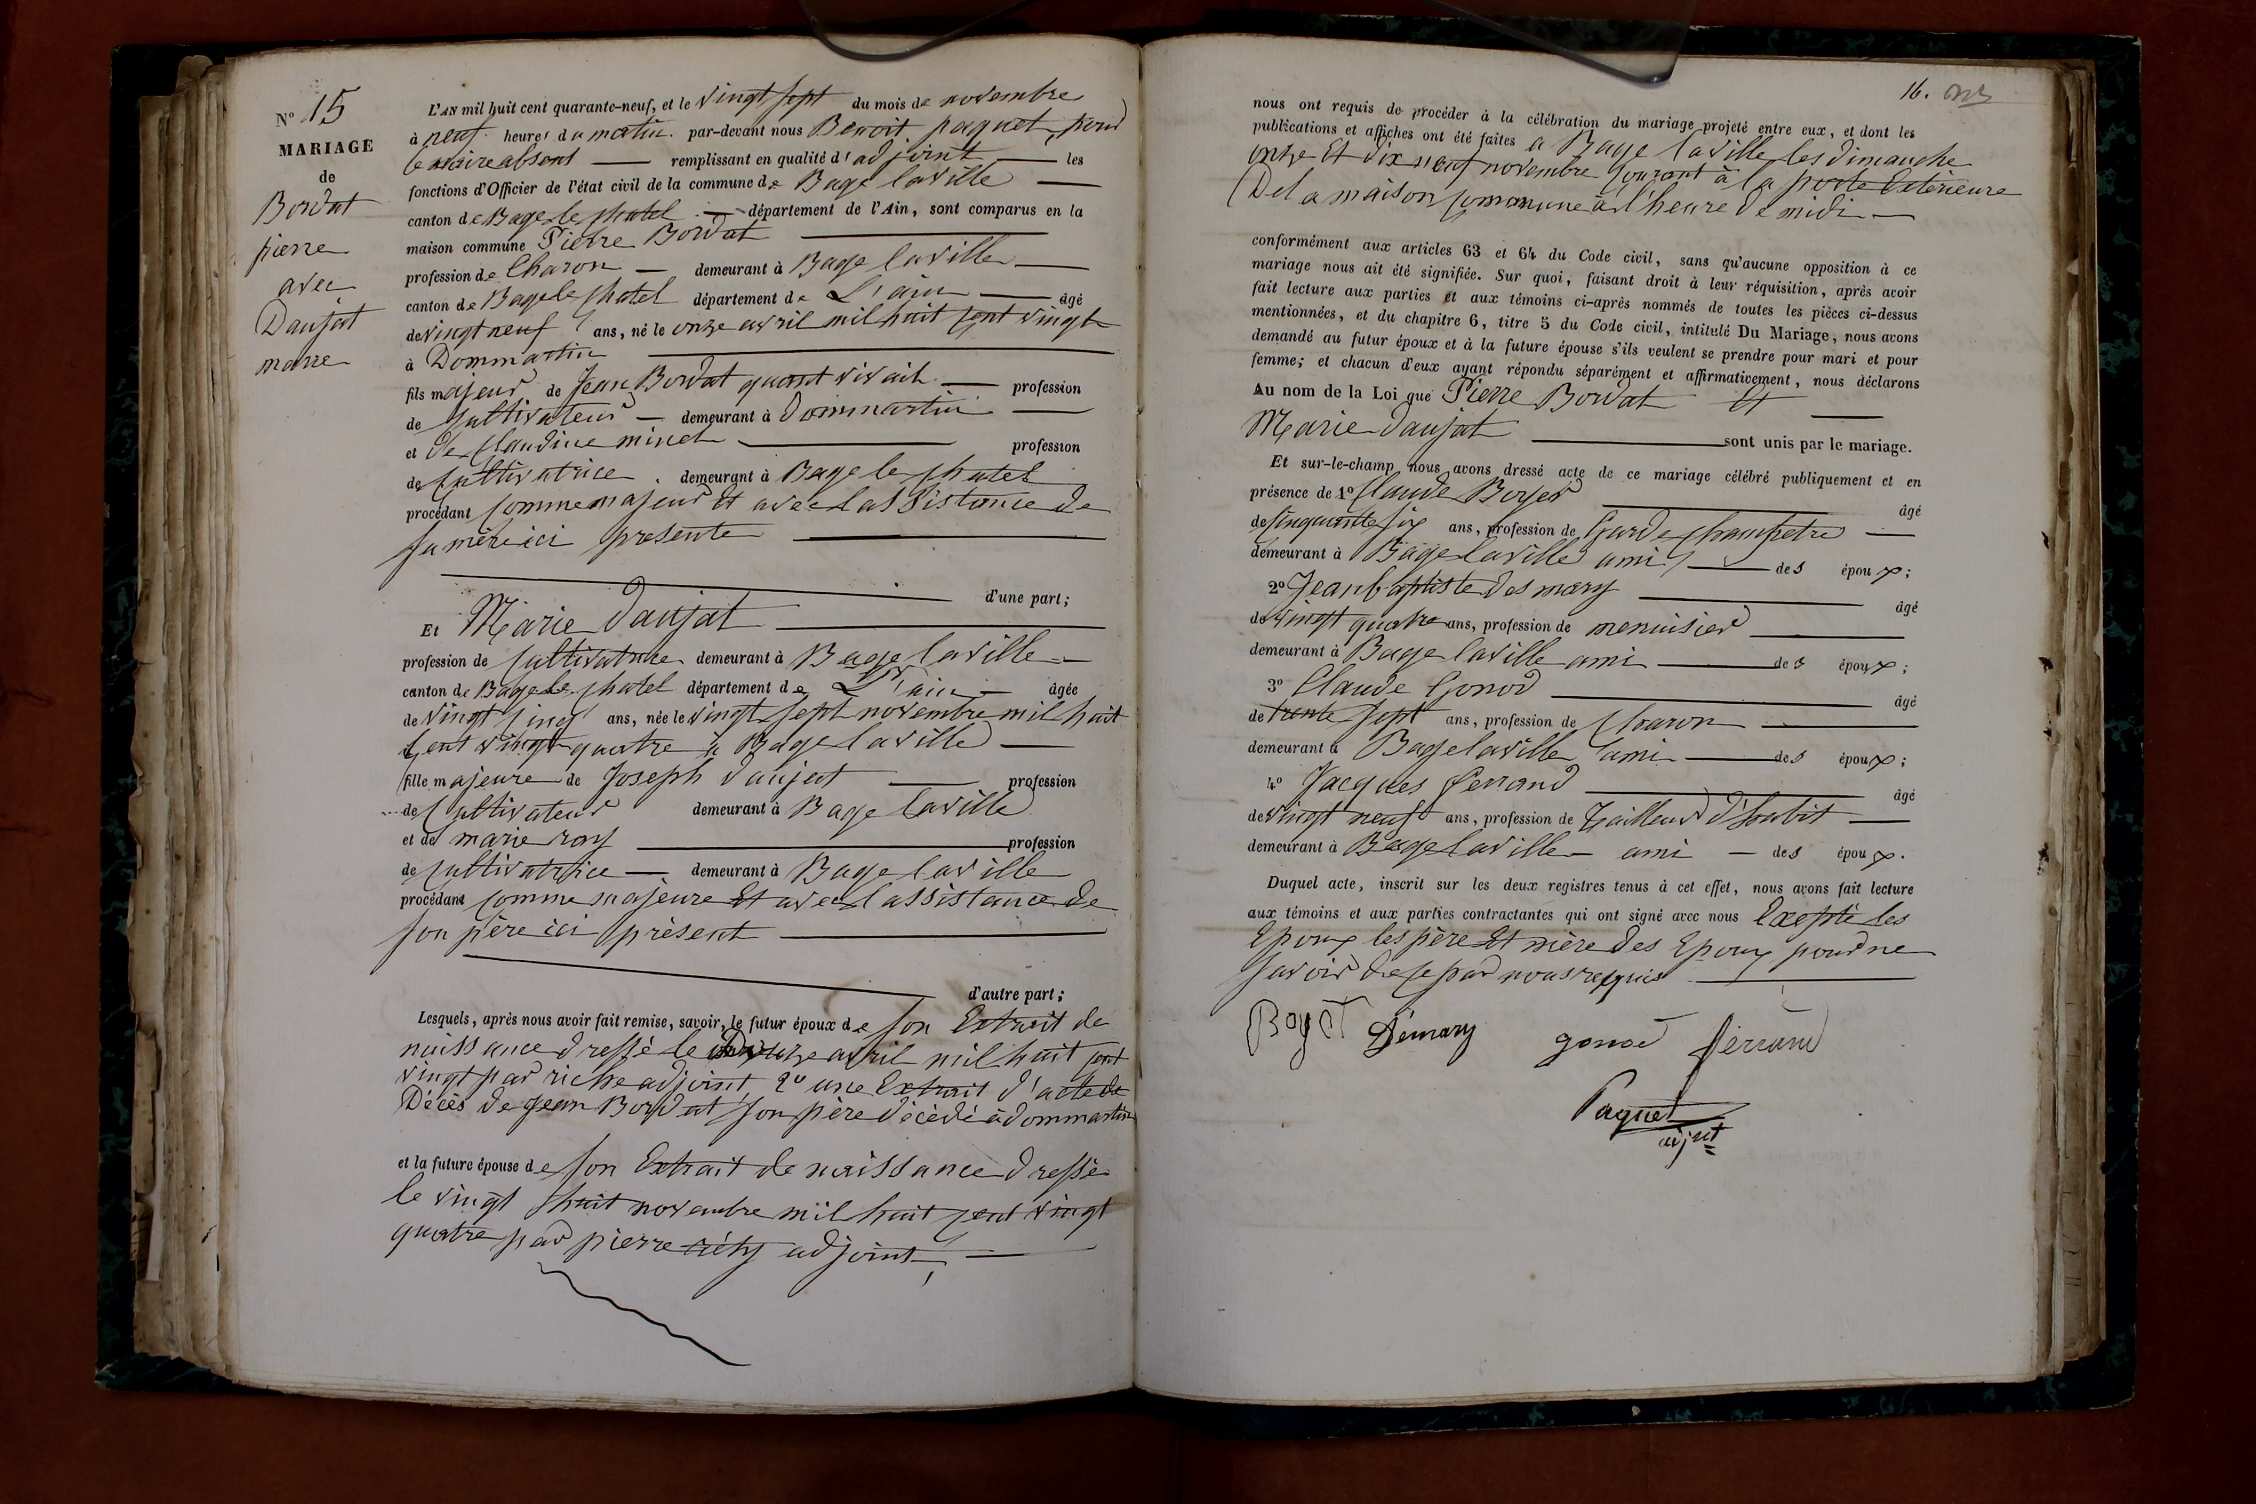 N° 15
MARIAGE
de
Bordat
pierre
avec
Daujat
marie
L'AN mil huit cent quarante-neuf, et le vingt sept du mois de novembre
à neuf heures du matin par-devant nous Benoit paquet, pour
le maire absent remplissant en qualité d'adjoint les
fonctions d'Officier de l'état civil de la commune de Bage laville
canton de Bage le chatel département de l'Ain, sont comparus en la
maison commune Pierre Bordat
profession de Charon demeurant à Bage laville
canton de Bage le chatel département de L'ain âgé
de vingt neuf ans, né le onze avril mil huit cent vingt
à Dommartin
fils majeur de Jean Bordat quant vivait profession
de cultivateur demeurant à dommartin
et de Claudine minet profession
de cultivatrice demeurant à Bage le chatel
procédant comme majeur Et avec lassistance de
sa mère ici presente
d'une part;
Et Marie daujat
profession de cultivatrice demeurant à Bage laville
canton de Bage le chatel département de L'ain âgée
de vingt cinq ans, née le vingt sept novembre mil huit
cent vingt quatre à Bage laville
fille majeure de Joseph daujat profession
de cultivateur demeurant à Bage laville
et de marie roy profession
de cultivatrice demeurant à Bage laville
procédant comme majeure Et avec lassistance de
son père ici présent
d'autre part;
Lesquels, après nous avoir fait remise, savoir, le futur époux de son Extrait de
naissance dressé le avril mil huit cent
vingt par riche adjoint, 2° une Extrait d'acte de
Décès de Jean Bordat son père décédé à dommartin
et la future épouse de son Extrait de naissance dressé
le vingt huit novembre mil huit cent vingt
quatre par pierre adjoint,
16.
nous ont requis de procéder à la célébration du mariage projeté entre eux, et dont les
publications et affiches ont été faites a Bage laville les dimanche
onze Et dix neuf novembre courant à la porte Extérieure
De la maison commune à l'heure de midi
conformément aux articles 63 et 64 du Code civil, sans qu'aucune opposition à ce
mariage nous ait été signifiée. Sur quoi, faisant droit à leur réquisition, après avoir
fait lecture aux parties et aux témoins ci-après nommés de toutes les pièces ci-dessus
mentionnées, et du chapitre 6, titre 5 du Code civil, intitulé Du Mariage, nous avons
demandé au futur époux et à la future épouse s'ils veulent se prendre pour mari et pour
femme; et chacun d'eux ayant répondu séparément et affirmativement, nous déclarons
Au nom de la Loi que Pierre Bordat Et
Marie daujat sont unis par le mariage.
Et sur-le-champ nous avons dressé acte de ce mariage célébré publiquement et en
présence de 1° Claude Boyer âgé
de cinquante six ans, profession de Garde champetre
demeurant à Bage laville ami des époux;
2° Jean baptiste desmary âgé
de vingt quatre ans, profession de menuisier
demeurant à Bage laville ami des époux;
3° Claude Gonod âgé
de trente sept ans, profession de Charon
demeurant à Bage laville ami des époux;
4° Jacques ferrand âgé
de vingt neuf ans, profession de tailleur d'habit
demeurant à Bage laville ami des époux.
Duquel acte, inscrit sur les deux registres tenus à cet effet, nous avons fait lecture
aux témoins et aux parties contractantes qui ont signé avec nous Excepté les
Epoux les père Et mère des Epoux pour ne
savoir de ce par nous requis
Boyet Démary gonod ferrand
Paquet
adjnt